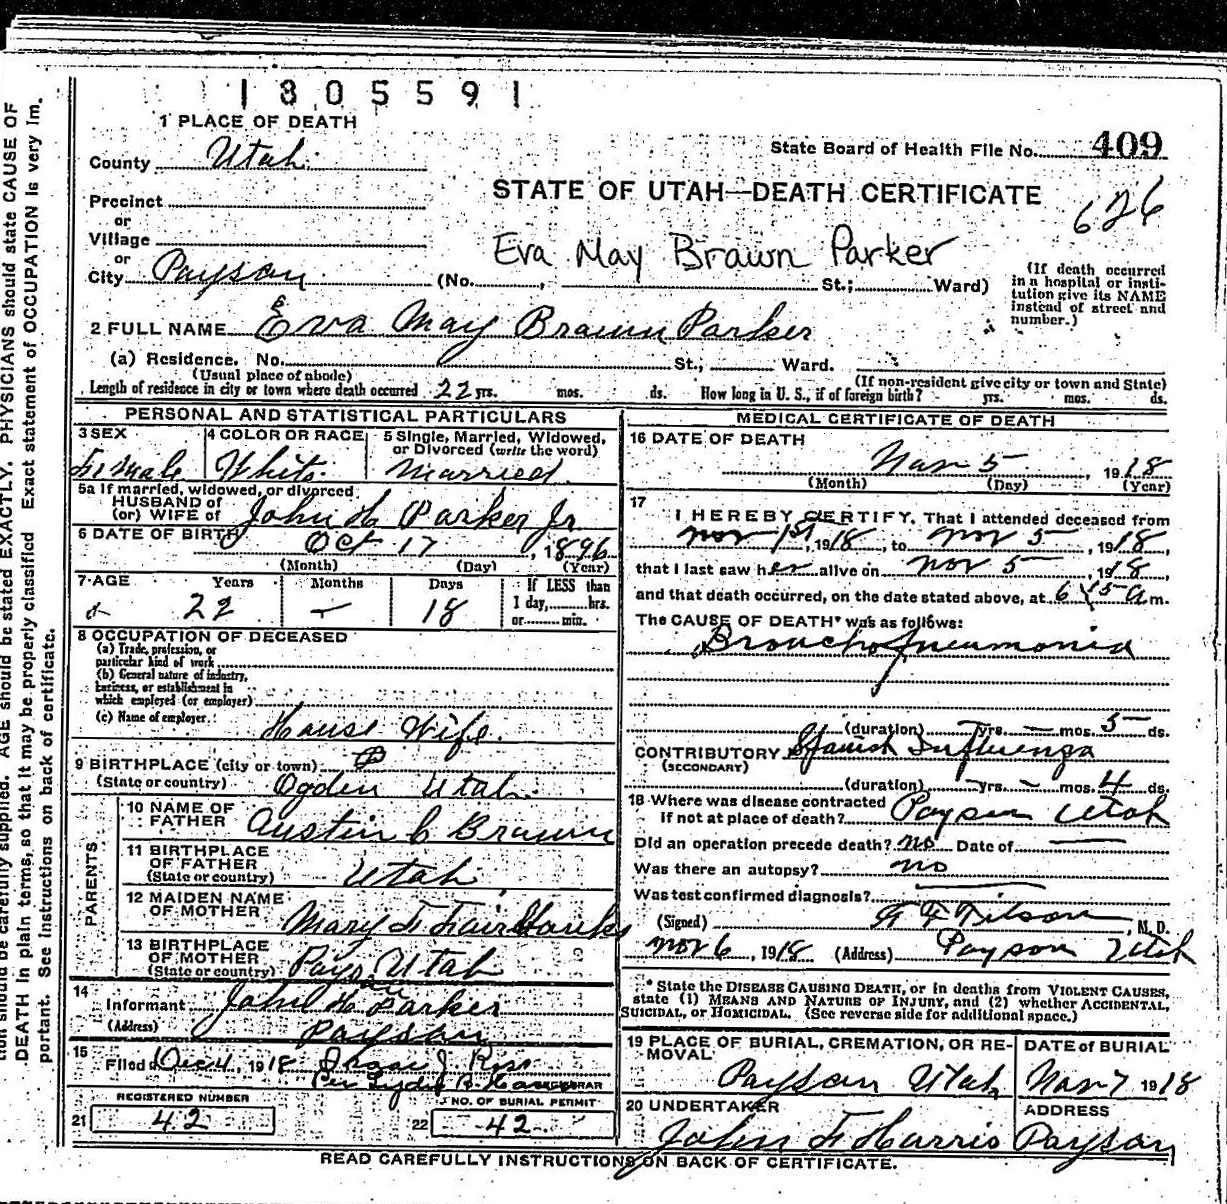 1305591
1 PLACE OF DEATH
County Utah
State Board of Health File No. 409
626
STATE OF UTAH—DEATH CERTIFICATE
Precinct
or
Village
or
City Payson (No. , St.; Ward)
Eva May Brown Parker
(If death occurred in a hospital or institution give its NAME instead of street and number.)
2 FULL NAME Eva May Brown Parker
(a) Residence. No. St., Ward.
(Usual place of abode)
(If non-resident give city or town and State)
Length of residence in city or town where death occurred 22 yrs. mos. ds. How long in U. S., if of foreign birth? yrs. mos. ds.
PERSONAL AND STATISTICAL PARTICULARS
3 SEX
Female
4 COLOR OR RACE
White
5 Single, Married, Widowed, or Divorced (write the word)
Married
5a If married, widowed, or divorced
HUSBAND of
(or) WIFE of John H Parker Jr
6 DATE OF BIRTH Oct 17, 1896
(Month) (Day) (Year)
7 AGE Years Months Days If LESS than
22 — 18 1 day, hrs.
or min.
8 OCCUPATION OF DECEASED
(a) Trade, profession, or particular kind of work
(b) General nature of industry, business, or establishment in which employed (or employer)
(c) Name of employer
House Wife
9 BIRTHPLACE (city or town)
(State or country) Ogden Utah
PARENTS
10 NAME OF FATHER Austin C Brown
11 BIRTHPLACE OF FATHER (State or country) Utah
12 MAIDEN NAME OF MOTHER Mary F Fairbanks
13 BIRTHPLACE OF MOTHER (State or country) Payson Utah
14
Informant John H Parker
(Address) Payson
15
Filed Dec 4, 1918
REGISTRAR
REGISTERED NUMBER
21 42
NO. OF BURIAL PERMIT
22 42
MEDICAL CERTIFICATE OF DEATH
16 DATE OF DEATH
Nov 5 1918
(Month) (Day) (Year)
17
I HEREBY CERTIFY, That I attended deceased from
nov 1st, 1918, to nov 5, 1918,
that I last saw her alive on nov 5, 1918,
and that death occurred, on the date stated above, at 6 45 a m.
The CAUSE OF DEATH* was as follows:
Broncho pneumonia
(duration) — yrs. — mos. 5 ds.
CONTRIBUTORY Spanish Influenza
(SECONDARY)
(duration) — yrs. — mos. 4 ds.
18 Where was disease contracted
if not at place of death? Payson Utah
Did an operation precede death? no Date of —
Was there an autopsy? no
Was test confirmed diagnosis?
(Signed) , M. D.
nov 6, 1918 (Address) Payson Utah
* State the DISEASE CAUSING DEATH, or in deaths from VIOLENT CAUSES,
state (1) MEANS AND NATURE OF INJURY, and (2) whether ACCIDENTAL,
SUICIDAL, or HOMICIDAL. (See reverse side for additional space.)
19 PLACE OF BURIAL, CREMATION, OR REMOVAL
Payson Utah
DATE of BURIAL
Nov 7 1918
20 UNDERTAKER
John F Harris
ADDRESS
Payson
READ CAREFULLY INSTRUCTIONS ON BACK OF CERTIFICATE.
tion should be carefully supplied. AGE should be stated EXACTLY. PHYSICIANS should state CAUSE OF
DEATH in plain terms, so that it may be properly classified Exact statement of OCCUPATION is very im-
portant. See instructions on back of certificate.